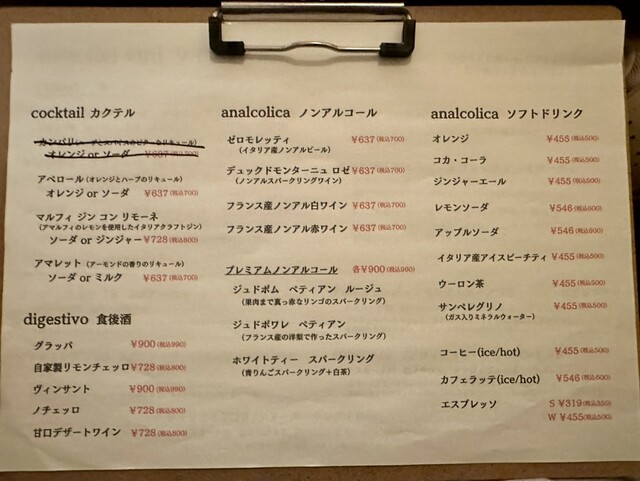 cocktail カクテル
オレンジ or ソーダ ¥637(税込700)
アペロール(オレンジとハーブのリキュール)
オレンジ or ソーダ ¥637(税込700)
マルフィ ジン コン リモーネ
(アマルフィのレモンを使用したイタリアクラフトジン)
ソーダ or ジンジャー ¥728(税込800)
アマレット(アーモンドの香りのリキュール)
ソーダ or ミルク ¥637(税込700)
digestivo 食後酒
グラッパ ¥900(税込990)
自家製リモンチェッロ ¥728(税込800)
ヴィンサント ¥900(税込990)
ノチェッロ ¥728(税込800)
甘口デザートワイン ¥728(税込800)
analcolica ノンアルコール
ゼロモレッティ ¥637(税込700)
(イタリア産ノンアルビール)
デュックドモンターニュ ロゼ ¥637(税込700)
(ノンアルスパークリングワイン)
フランス産ノンアル白ワイン ¥637(税込700)
フランス産ノンアル赤ワイン ¥637(税込700)
プレミアムノンアルコール 各¥900(税込990)
ジュドポム ペティアン ルージュ
(果肉まで真っ赤なリンゴのスパークリング)
ジュドポワレ ペティアン
(フランス産の洋梨で作ったスパークリング)
ホワイトティー スパークリング
(青りんごスパークリング+白茶)
analcolica ソフトドリンク
オレンジ ¥455(税込500)
コカ・コーラ ¥455(税込500)
ジンジャーエール ¥455(税込500)
レモンソーダ ¥546(税込600)
アップルソーダ ¥546(税込600)
イタリア産アイスピーチティ ¥455(税込500)
ウーロン茶 ¥455(税込500)
サンペレグリノ ¥455(税込500)
(ガス入りミネラルウォーター)
コーヒー(ice/hot) ¥455(税込500)
カフェラッテ(ice/hot) ¥546(税込600)
エスプレッソ S ¥319(税込350)
W ¥455(税込500)